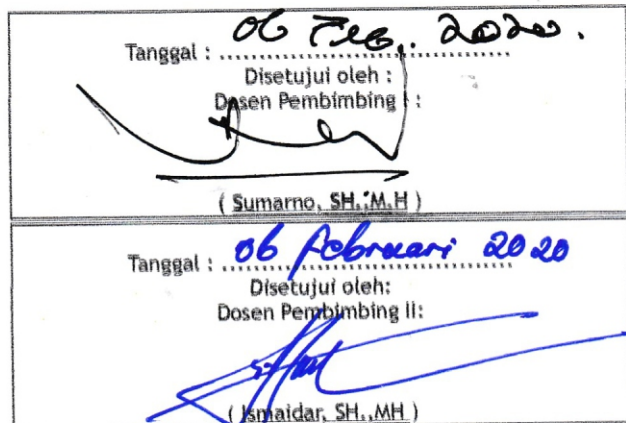 Tanggal : 06 Feb. 2020.
Disetujui oleh :
Dosen Pembimbing I :
( Sumarno, SH.,M.H )
Tanggal : 06 Februari 2020
Disetujui oleh:
Dosen Pembimbing II:
( Ismaidar, SH.,MH )